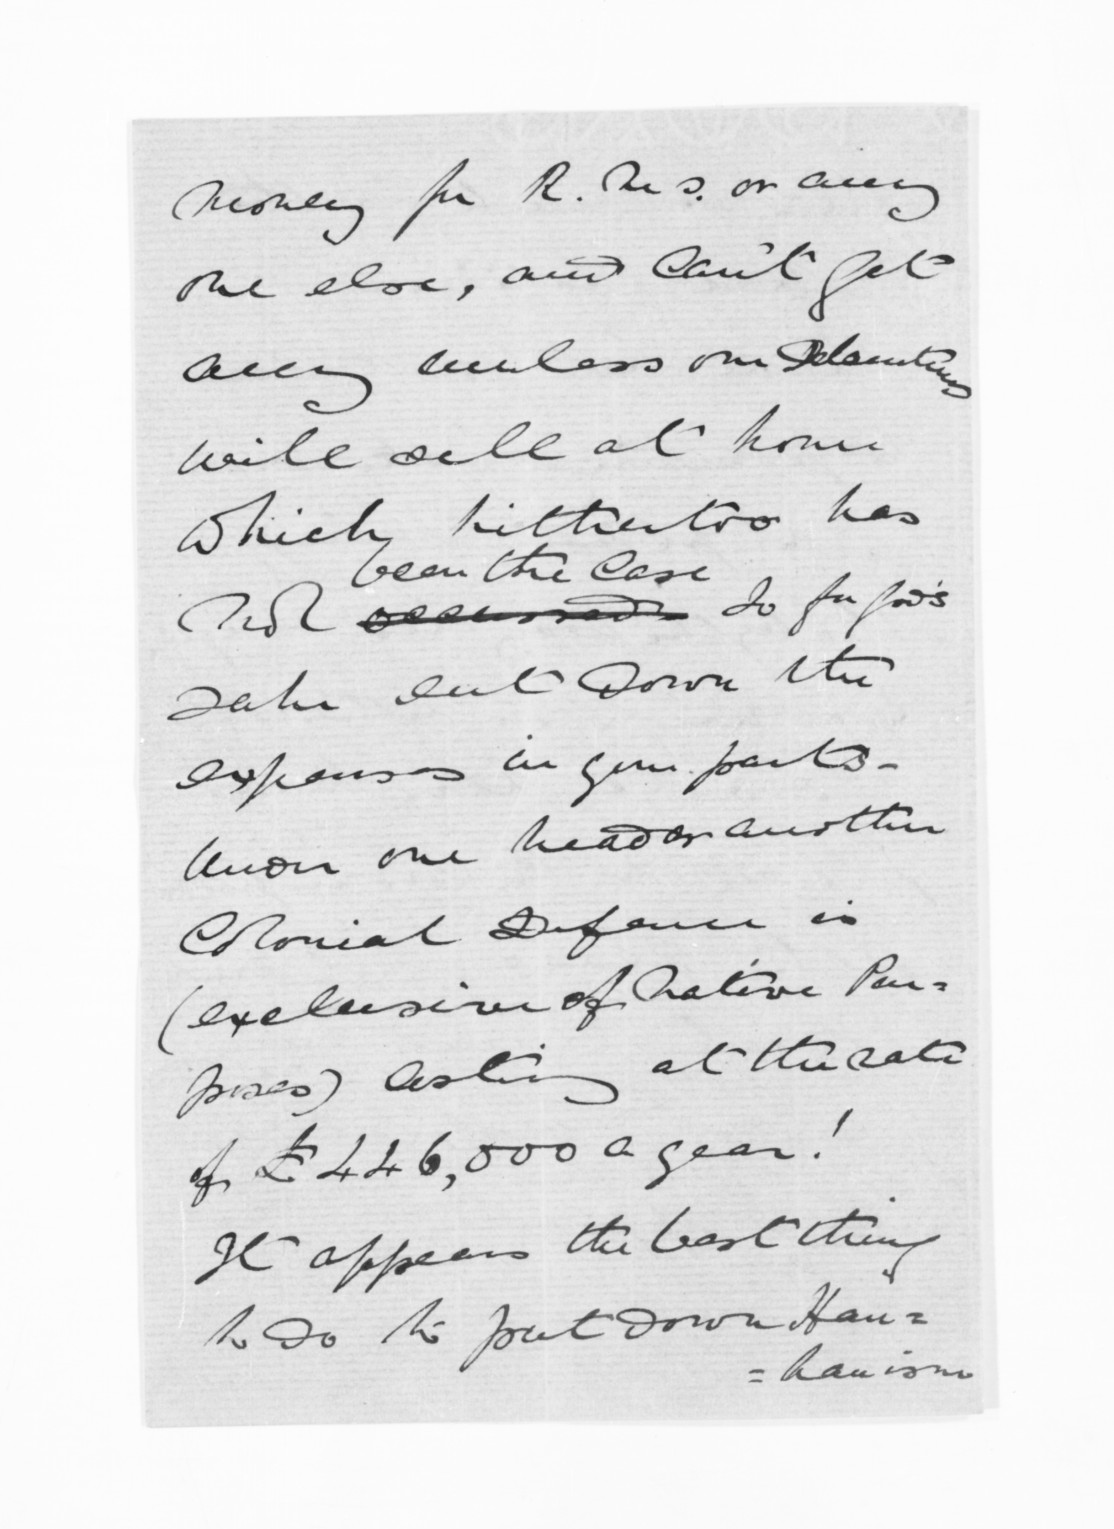 money for R. M s. or any
one else, and can't get
any unless our Debentures
will sell at home
which hithertoo has
been the case
not occurred so for god's
sake cut down the
expenses in your parts -
Under one head or another
Colonial Defence is
(exclusive of Native Pur=
poses) costing at the rate
of £446,000 a year!
It appears the best thing
to do to put down Hau=
=hauism